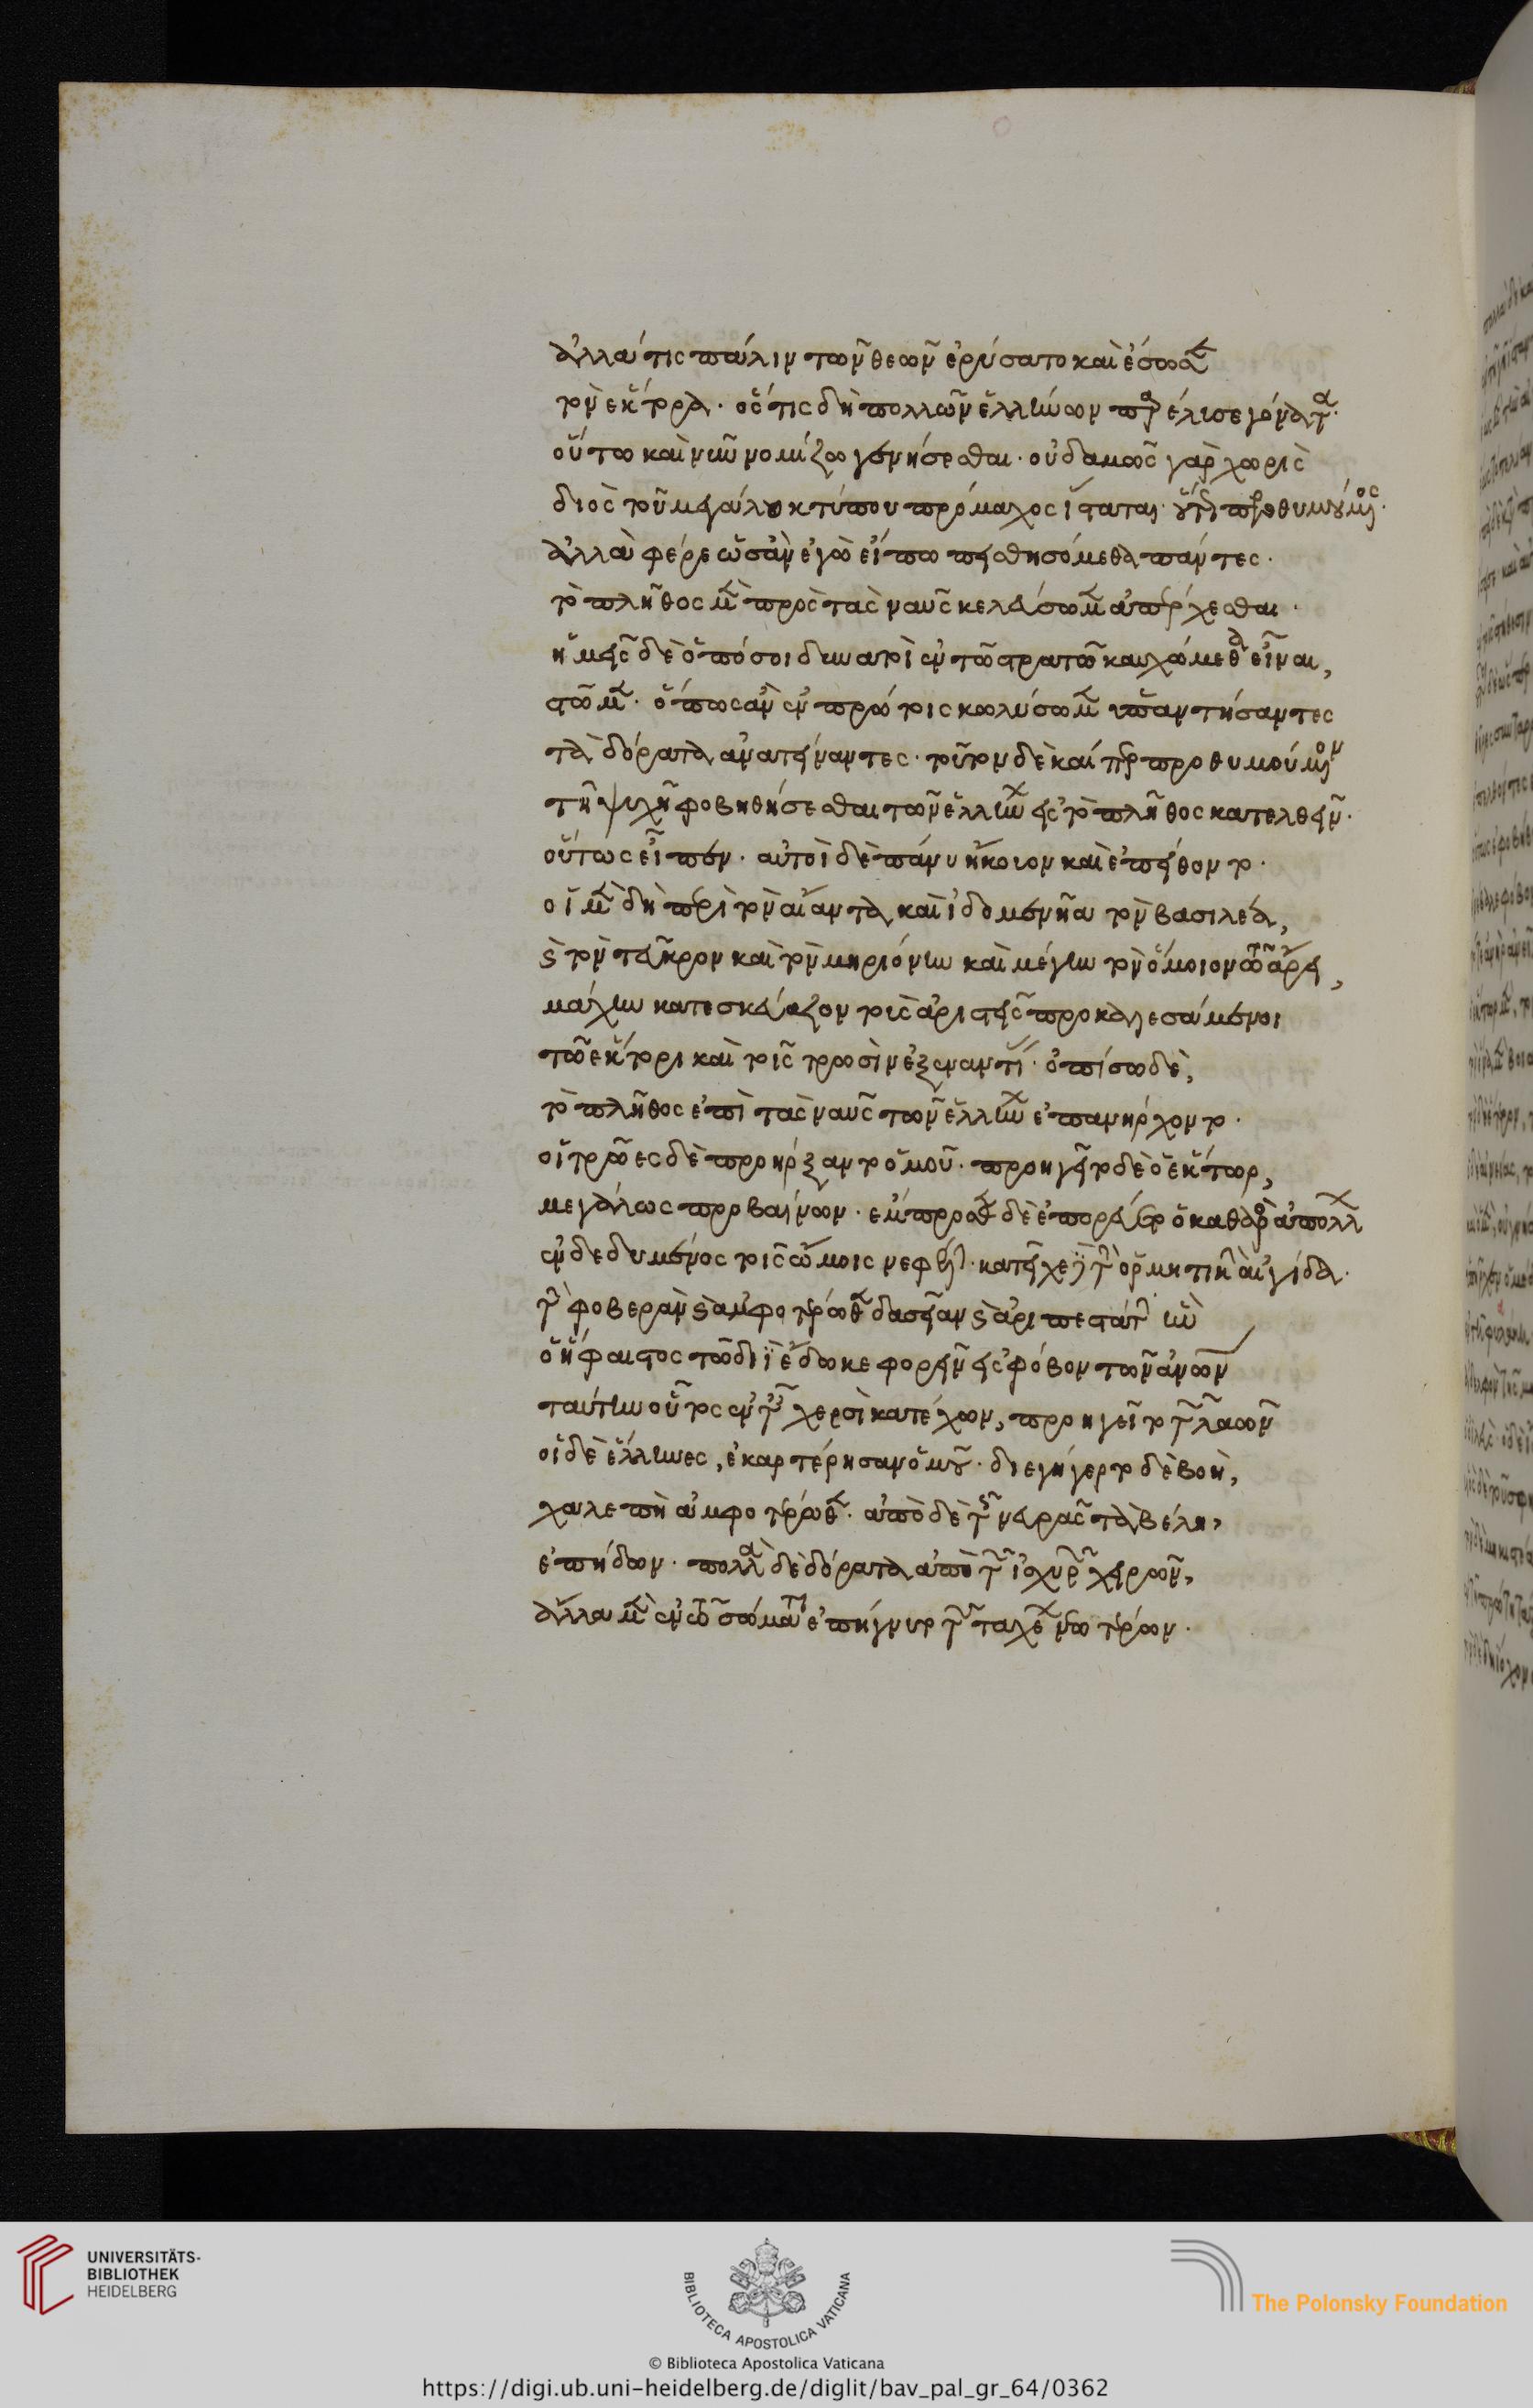 ἀλλά τις πάλιν τῶν θεῶν ἐρύσατο καὶ ἔσωσεν
τὸν ἕκτορα· ὅς τις δὴ πολλῶν ἑλλήνων παρέλισε γόνατα·
οὕτω καὶ νῦν νομίζω γενήσεσθαι· οὐδαμῶς γὰρ χωρὶς
διὸς τοῦ μεγαλοκτύπου πρόμαχος ἵσταται· οὕτω προθυμούμενος·
ἀλλὰ φέρε ὡς ἂν ἐγὼ εἴπω πεισθησόμεθα πάντες·
τὸ πλῆθος μὲν πρὸς τὰς ναῦς κελεύσωμεν ἀπέρχεσθαι·
ἡμεῖς δὲ ὁπόσοι δυνατοὶ ἐν τῶ στρατῶ καυχώμεθα εἶναι,
στῶμεν· ὅπως ἂν ἐν πρώτοις κωλύσωμεν ὑπαντήσαντες
τὰ δόρατα ἀνατείναντες· τοῦτον δὲ καίπερ προθυμούμενον
τῆ ψυχῆ φοβηθήσεσθαι τῶν ἑλλήνων εἰς τὸ πλῆθος κατελθεῖν·
οὕτως εἶπεν· αὐτοὶ δὲ πάνυ ἤκουον καὶ ἐπείθοντο·
οἱ μὲν δὴ περὶ τὸν αἴαντα καὶ ἰδομενῆα τὸν βασιλέα,
καὶ τὸν τεῦκρον καὶ τὸν μηριόνην καὶ μέγην τὸν ὅμοιον τῶ ἄρει,
μάχην κατεσκεύαζον τοὺς ἀριστεῖς προκαλεσάμενοι
τῶ ἕκτορι καὶ τοῖς τρωσὶν ἐξεναντίας· ὀπίσω δὲ,
τὸ πλῆθος ἐπὶ τὰς ναῦς τῶν ἑλλήνων ἐπανήρχοντο·
οἱ τρῶες δὲ προήρξαντο ὁμοῦ· προηγεῖτο δὲ ὁ ἕκτωρ,
μεγάλως προβαίνων· ἔμπροσθεν δὲ ἐπορεύετο ὁ καθαρὸς ἀπόλλων
ἐνδεδυμένος τοῖς ὤμοις νεφέλην· κατεῖχε δὲ τὴν ὁρμητικὴν αἰγίδα·
τὴν φοβερὰν καὶ ἀμφοτέρωθεν δασεῖαν καὶ ἀριπεστάτην ἣν
ὁ ἥφαιστος τῶ διῒ ἔδωκε φορεῖν εἰς φόβον τῶν ἀνῶν
ταύτην οὗτος ἐν ταῖς χερσὶ κατέχων, προηγεῖτο τῶν λαῶν
οἱ δὲ ἕλληνες, ἐκαρτέρησαν ὁμοῦ· διεγήγερτο δὲ βοὴ,
χαλεπὴ ἀμφοτέρωθεν· ἀπὸ δὲ τῆς νευρᾶς τὰ βέλη,
ἐπήδων· πολλὰ δὲ δόρατα ἀπὸ τῶν ἰσχυρῶν χειρῶν,
ἄλλα μὲν ἐν τοῖς σώμασι ἐπήγνυτο τῶν ταχέων νεωτέρων·
UNIVERSITÄTS-
BIBLIOTHEK
HEIDELBERG
BIBLIOTECA APOSTOLICA VATICANA
The Polonsky Foundation
© Biblioteca Apostolica Vaticana
https://digi.ub.uni-heidelberg.de/diglit/bav_pal_gr_64/0362